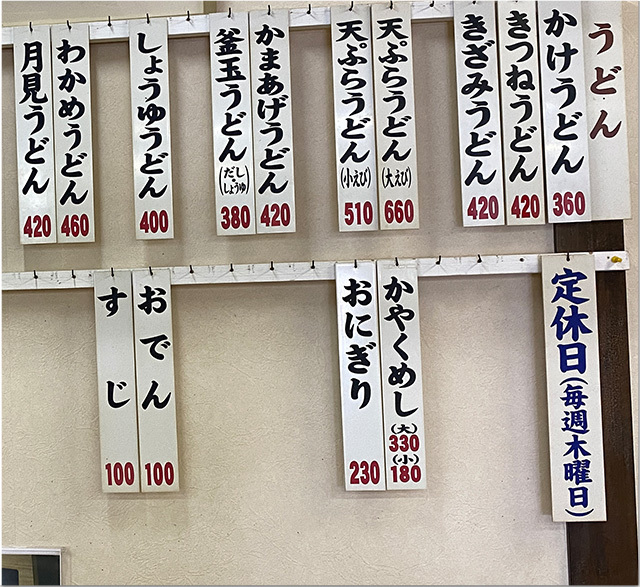 うどん
かけうどん
360
きつねうどん
420
きざみうどん
420
天ぷらうどん
(大えび)
660
天ぷらうどん
(小えび)
510
かまあげうどん
420
釜玉うどん
(だし・しょうゆ)
380
しょうゆうどん
400
わかめうどん
460
月見うどん
420
定休日(毎週木曜日)
かやくめし
(大)
330
(小)
180
おにぎり
230
おでん
100
すじ
100